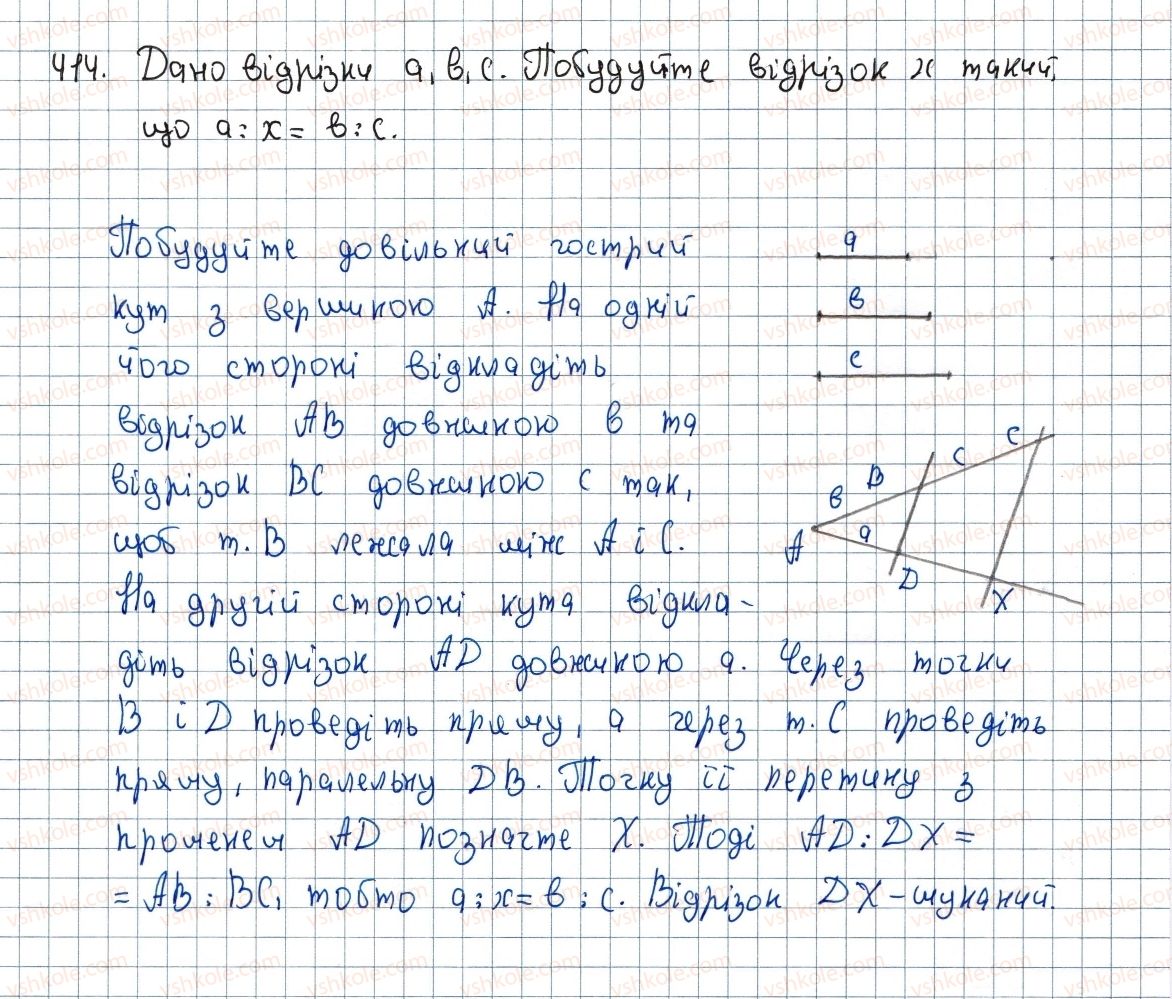 414. Дано відрізки а, в, с. Побудуйте відрізок х такий,
що а : х = в : с.
Побудуйте довільний гострий
кут з вершиною А. На одній
його стороні відкладіть
відрізок АВ довжиною в та
відрізок ВС довжиною с так,
щоб т. В лежала між А і С.
На другій стороні кута відкла-
діть відрізок АD довжиною а. Через точки
В і D проведіть пряму, а через т. С проведіть
пряму, паралельну DВ. Точку її перетину з
променем АD позначте Х. Тоді АD : DХ =
= АВ : ВС, тобто а : х = в : с. Відрізок DХ - шуканий.
а
в
с
А
в
В
с
С
а
D
Х
vshkole.com